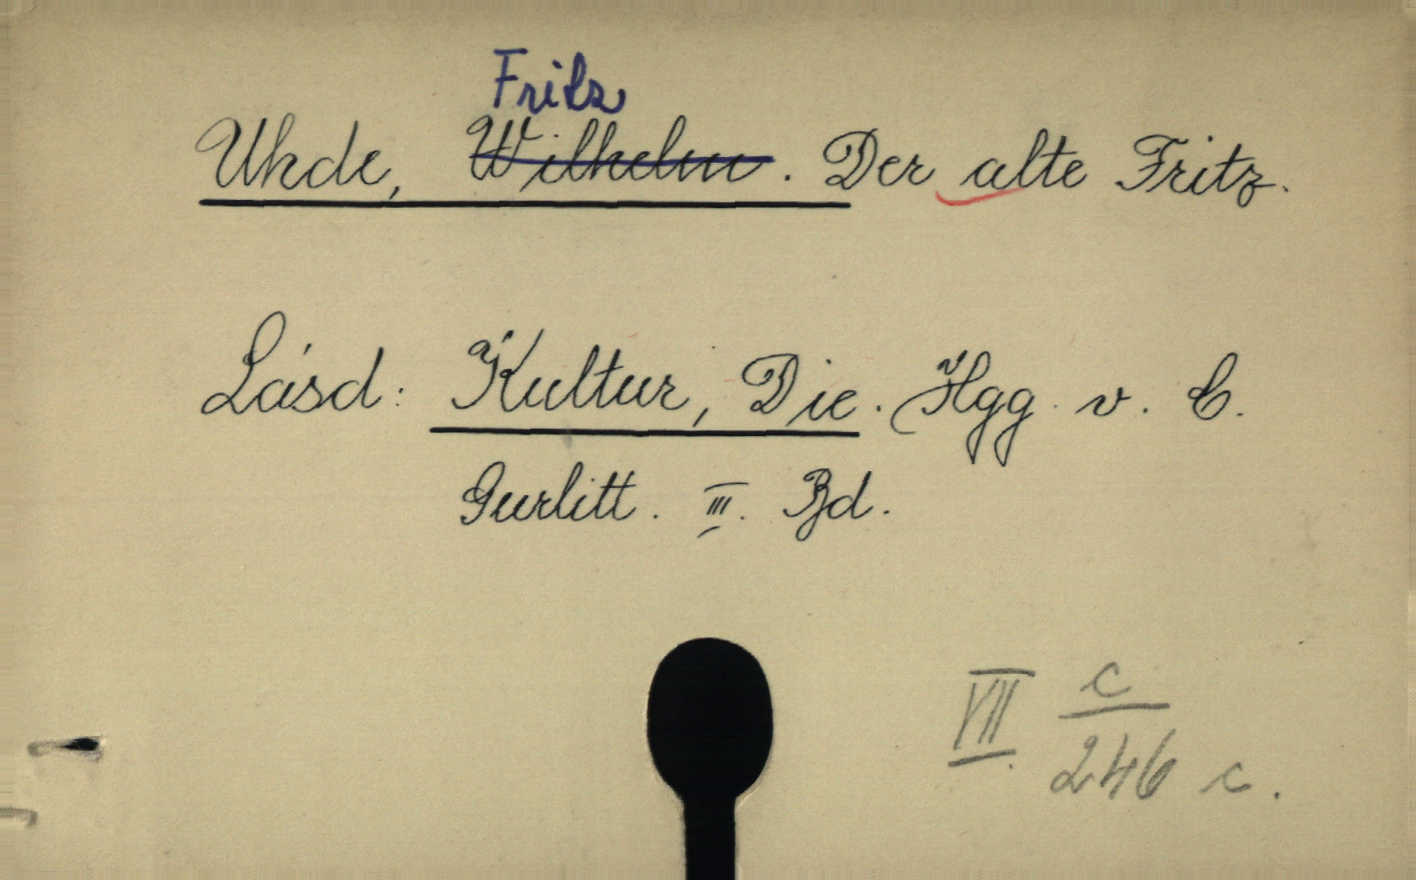 Frits
Uhde, Wilhelm. Der alte Fritz.
Lásd: Kultur, Die. Hgg. v. C.
Gurlitt. III. Bd.
VII. c/246 c.